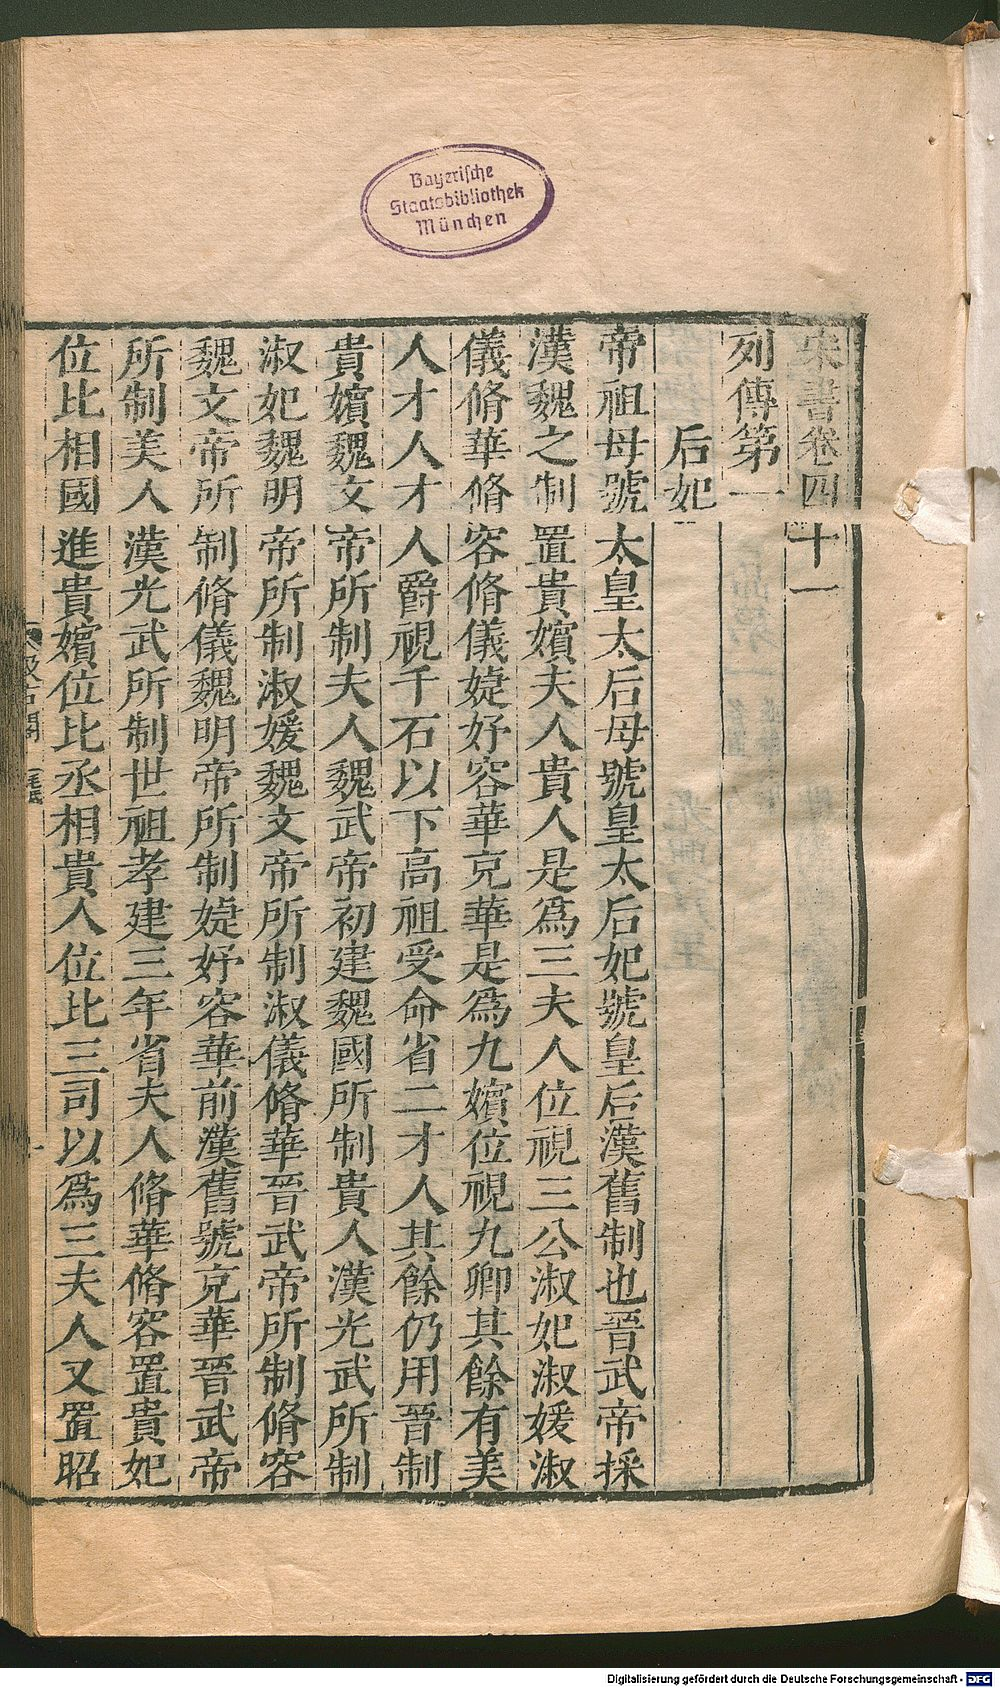 Bayerische
Staatsbibliothek
München
宋書卷四十一
列傳第一
后妃
帝祖母號太皇太后母號皇太后妃號皇后漢舊制也晉武帝採
漢魏之制置貴嬪夫人貴人是為三夫人位視三公淑妃淑媛淑
儀脩華脩容脩儀婕妤容華充華是為九嬪位視九卿其餘有美
人才人才人爵視千石以下高祖受命省二才人其餘仍用晉制
貴嬪魏文帝所制夫人魏武帝初建魏國所制貴人漢光武所制
淑妃魏明帝所制淑媛魏文帝所制淑儀脩華晉武帝所制脩容
魏文帝所制脩儀魏明帝所制婕妤容華前漢舊號充華晉武帝
所制美人漢光武所制世祖孝建三年省夫人脩華脩容置貴妃
位比相國進貴嬪位比丞相貴人位比三司以為三夫人又置昭
汲古閣
毛氏
Digitalisierung gefördert durch die Deutsche Forschungsgemeinschaft - DFG